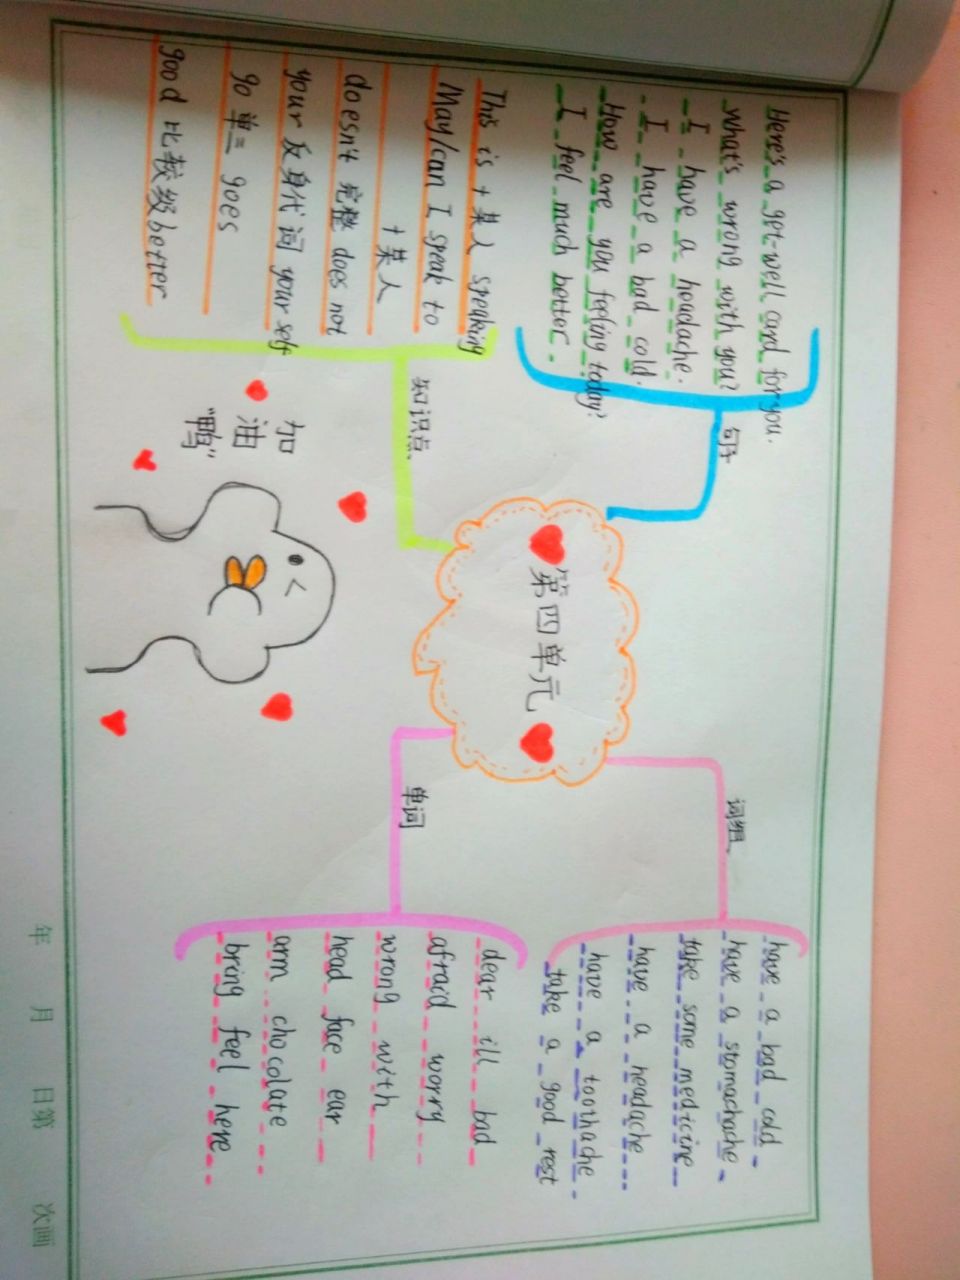 Here's a get-well card for you.
What's wrong with you?
- I have a headache.
- I have a bad cold.
How are you feeling today?
- I feel much better.
句子
This is + 某人 speaking
May/can I speak to
+ 某人
doesn't 完整 does not
your 反身代词 your self
go 单三 goes
good 比较级 better
知识点
第四单元
加
油
"鸭"
词组
have a bad cold
have a stomachache
take some medicine
have a headache
have a toothache
take a good rest
单词
dear ill bad
afraid worry
wrong with
head face ear
arm chocolate
bring feel here
年 月 日第 次画